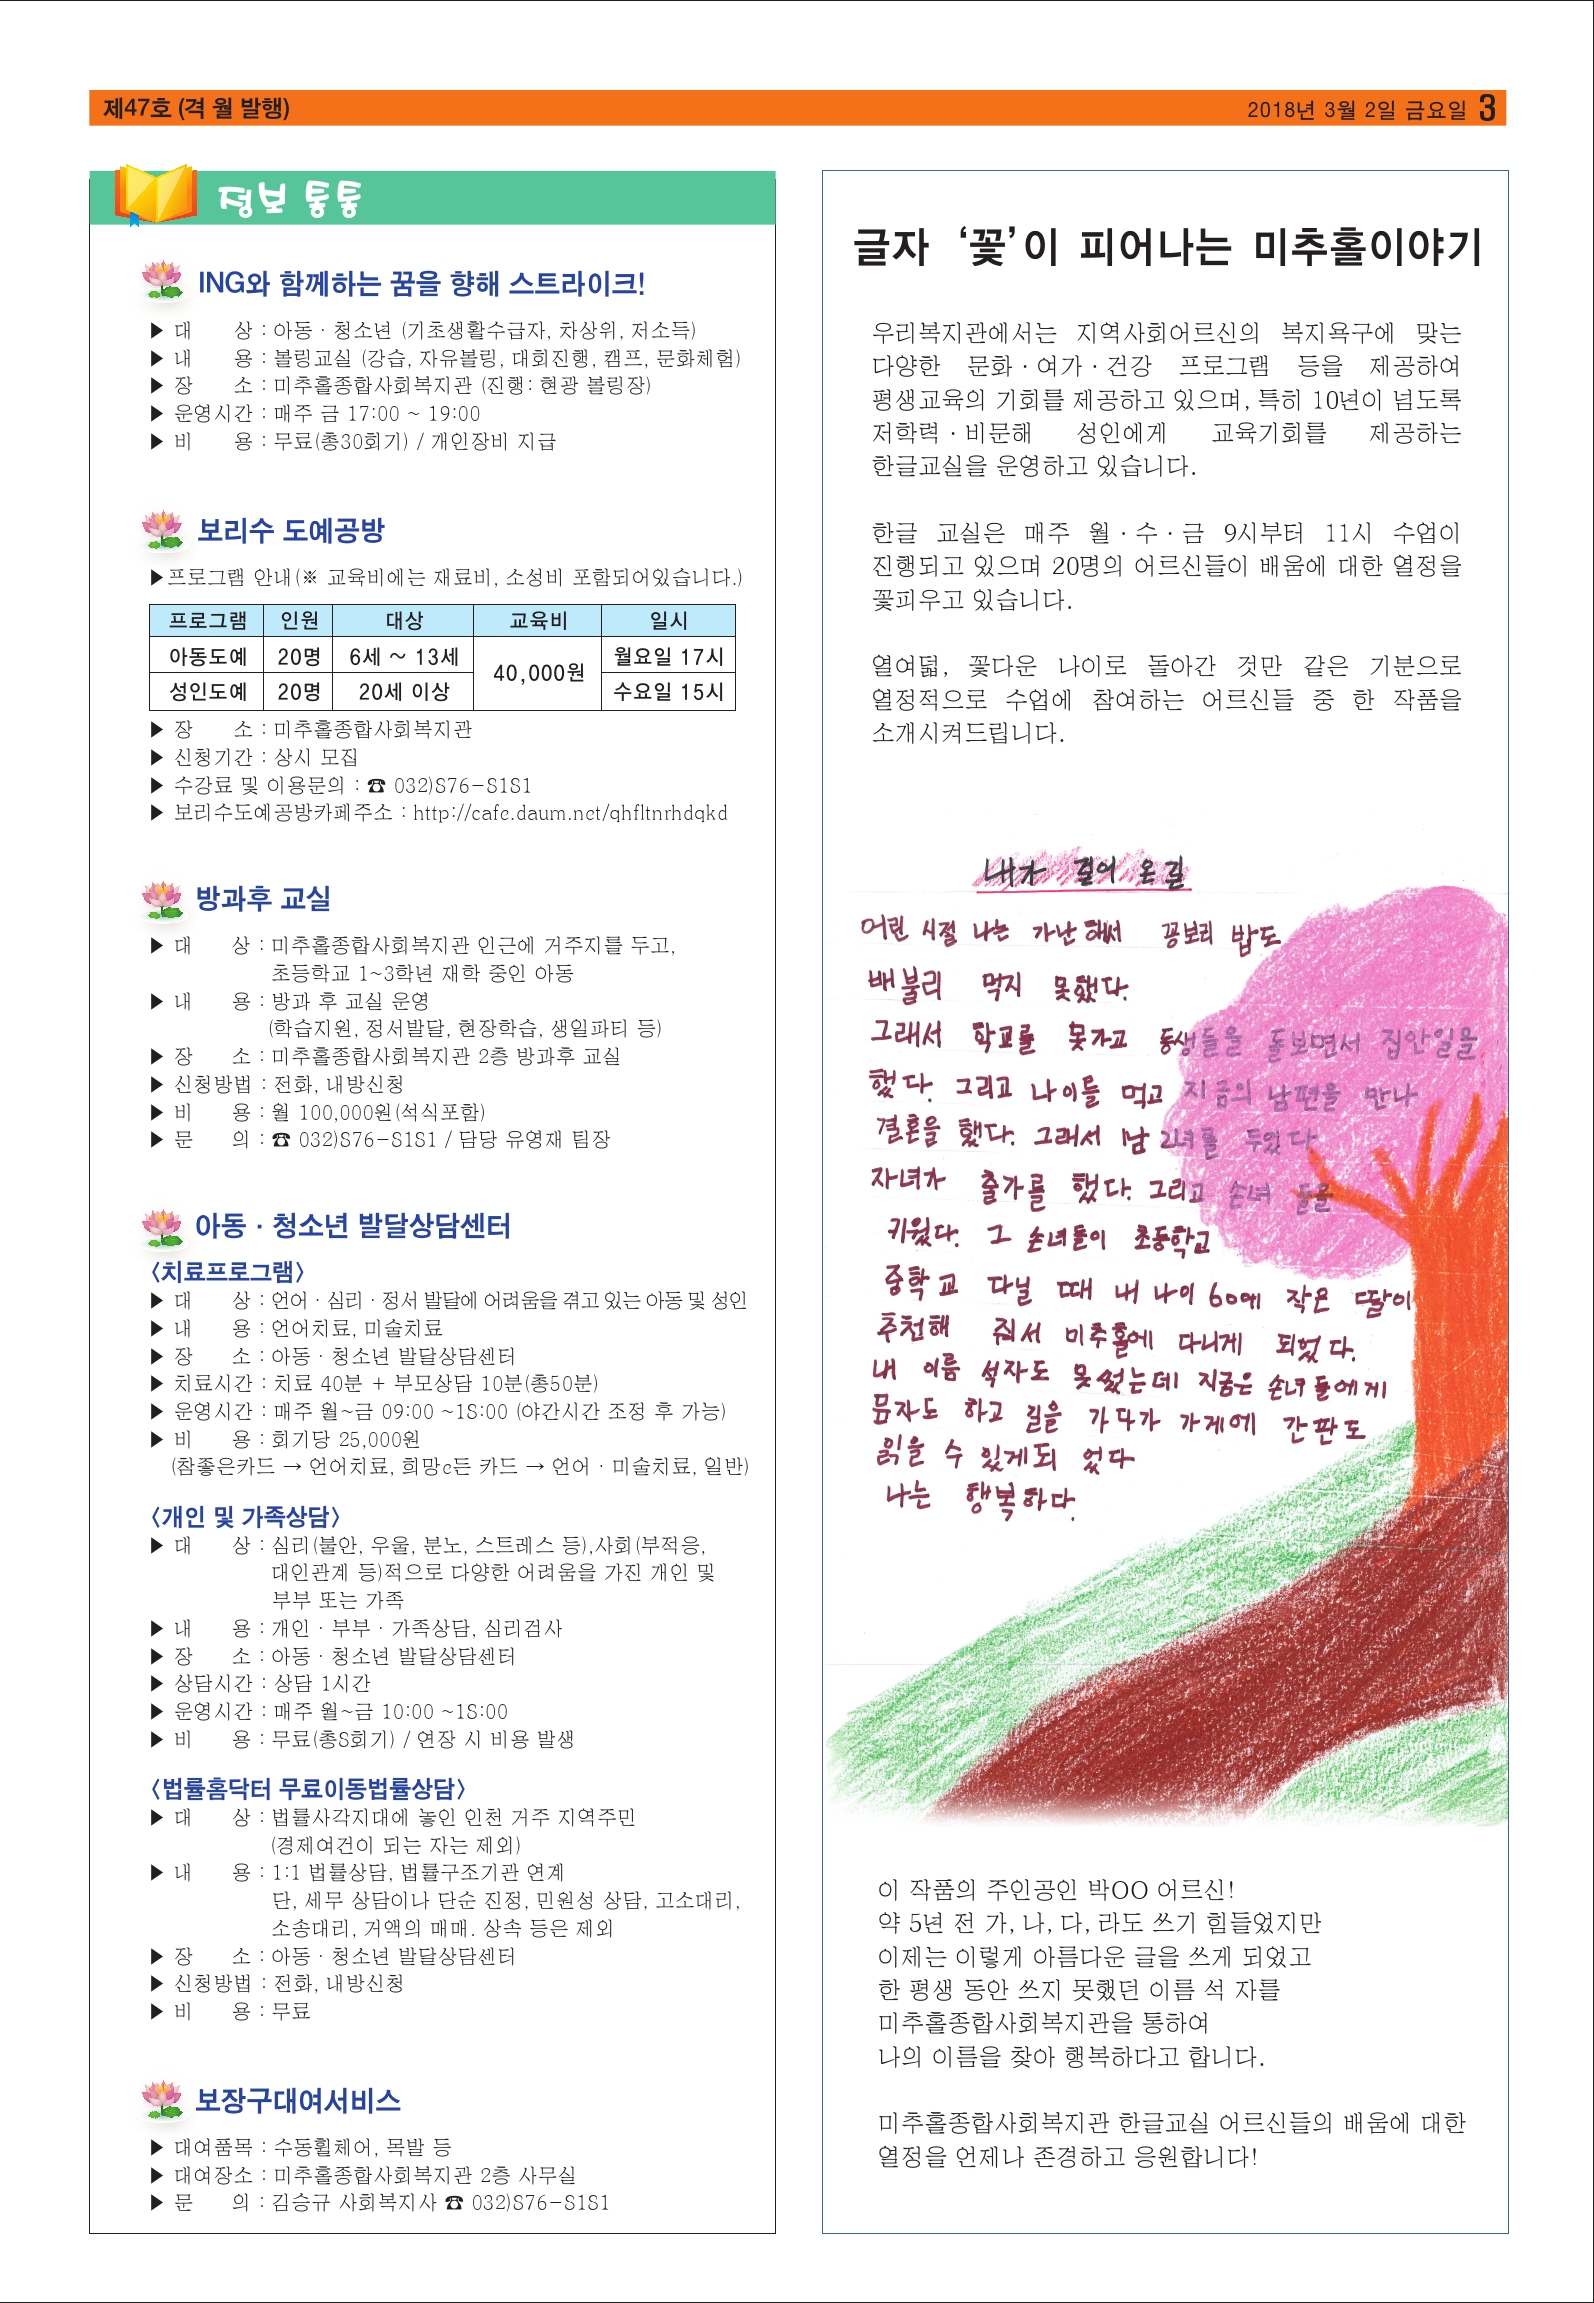 제47호 (격 월 발행)
2018년 3월 2일 금요일 3
정보 통통
ING와 함께하는 꿈을 향해 스트라이크!
▶ 대 상 : 아동 · 청소년 (기초생활수급자, 차상위, 저소득)
▶ 내 용 : 볼링교실 (강습, 자유볼링, 대회진행, 캠프, 문화체험)
▶ 장 소 : 미추홀종합사회복지관 (진행: 현광 볼링장)
▶ 운영시간 : 매주 금 17:00 ~ 19:00
▶ 비 용 : 무료(총30회기) / 개인장비 지급
보리수 도예공방
▶프로그램 안내(※ 교육비에는 재료비, 소성비 포함되어있습니다.)
프로그램 인원 대상 교육비 일시
아동도예 20명 6세 ~ 13세 40,000원 월요일 17시
성인도예 20명 20세 이상 수요일 15시
▶ 장 소 : 미추홀종합사회복지관
▶ 신청기간 : 상시 모집
▶ 수강료 및 이용문의 : ☎ 032)876-8181
▶ 보리수도예공방카페주소 : http://cafe.daum.net/qhfltnrhdqkd
방과후 교실
▶ 대 상 : 미추홀종합사회복지관 인근에 거주지를 두고,
초등학교 1~3학년 재학 중인 아동
▶ 내 용 : 방과 후 교실 운영
(학습지원, 정서발달, 현장학습, 생일파티 등)
▶ 장 소 : 미추홀종합사회복지관 2층 방과후 교실
▶ 신청방법 : 전화, 내방신청
▶ 비 용 : 월 100,000원(석식포함)
▶ 문 의 : ☎ 032)876-8181 / 담당 유영재 팀장
아동 · 청소년 발달상담센터
〈치료프로그램〉
▶ 대 상 : 언어 · 심리 · 정서 발달에 어려움을 겪고 있는 아동 및 성인
▶ 내 용 : 언어치료, 미술치료
▶ 장 소 : 아동 · 청소년 발달상담센터
▶ 치료시간 : 치료 40분 + 부모상담 10분(총50분)
▶ 운영시간 : 매주 월~금 09:00 ~18:00 (야간시간 조정 후 가능)
▶ 비 용 : 회기당 25,000원
(참좋은카드 → 언어치료, 희망e든 카드 → 언어 · 미술치료, 일반)
〈개인 및 가족상담〉
▶ 대 상 : 심리(불안, 우울, 분노, 스트레스 등),사회(부적응,
대인관계 등)적으로 다양한 어려움을 가진 개인 및
부부 또는 가족
▶ 내 용 : 개인 · 부부 · 가족상담, 심리검사
▶ 장 소 : 아동 · 청소년 발달상담센터
▶ 상담시간 : 상담 1시간
▶ 운영시간 : 매주 월~금 10:00 ~18:00
▶ 비 용 : 무료(총8회기) / 연장 시 비용 발생
〈법률홈닥터 무료이동법률상담〉
▶ 대 상 : 법률사각지대에 놓인 인천 거주 지역주민
(경제여건이 되는 자는 제외)
▶ 내 용 : 1:1 법률상담, 법률구조기관 연계
단, 세무 상담이나 단순 진정, 민원성 상담, 고소대리,
소송대리, 거액의 매매. 상속 등은 제외
▶ 장 소 : 아동 · 청소년 발달상담센터
▶ 신청방법 : 전화, 내방신청
▶ 비 용 : 무료
보장구대여서비스
▶ 대여품목 : 수동휠체어, 목발 등
▶ 대여장소 : 미추홀종합사회복지관 2층 사무실
▶ 문 의 : 김승규 사회복지사 ☎ 032)876-8181
글자 ‘꽃’이 피어나는 미추홀이야기
우리복지관에서는 지역사회어르신의 복지욕구에 맞는
다양한 문화 · 여가 · 건강 프로그램 등을 제공하여
평생교육의 기회를 제공하고 있으며, 특히 10년이 넘도록
저학력 · 비문해 성인에게 교육기회를 제공하는
한글교실을 운영하고 있습니다.
한글 교실은 매주 월 · 수 · 금 9시부터 11시 수업이
진행되고 있으며 20명의 어르신들이 배움에 대한 열정을
꽃피우고 있습니다.
열여덟, 꽃다운 나이로 돌아간 것만 같은 기분으로
열정적으로 수업에 참여하는 어르신들 중 한 작품을
소개시켜드립니다.
내가 걸어 온 길
어린 시절 나는 가난 해서 꽁보리 밥도
배불리 먹지 못했다.
그래서 학교를 못가고 동생들을 돌보면서 집안일을
했다. 그리고 나이를 먹고 지금의 남편을 만나
결혼을 했다. 그래서 1남 2녀를 두었다.
자녀가 출가를 했다. 그리고 손녀 들을
키웠다. 그 손녀들이 초등학교
중학교 다닐 때 내 나이 60에 작은 딸이
추천해 줘서 미추홀에 다니게 되었다.
내 이름 석자도 못썼는데 지금은 손녀 들에게
문자도 하고 길을 가다가 가게에 간판도
읽을 수 있게되 었다
나는 행복하다.
이 작품의 주인공인 박OO 어르신!
약 5년 전 가, 나, 다, 라도 쓰기 힘들었지만
이제는 이렇게 아름다운 글을 쓰게 되었고
한 평생 동안 쓰지 못했던 이름 석 자를
미추홀종합사회복지관을 통하여
나의 이름을 찾아 행복하다고 합니다.
미추홀종합사회복지관 한글교실 어르신들의 배움에 대한
열정을 언제나 존경하고 응원합니다!